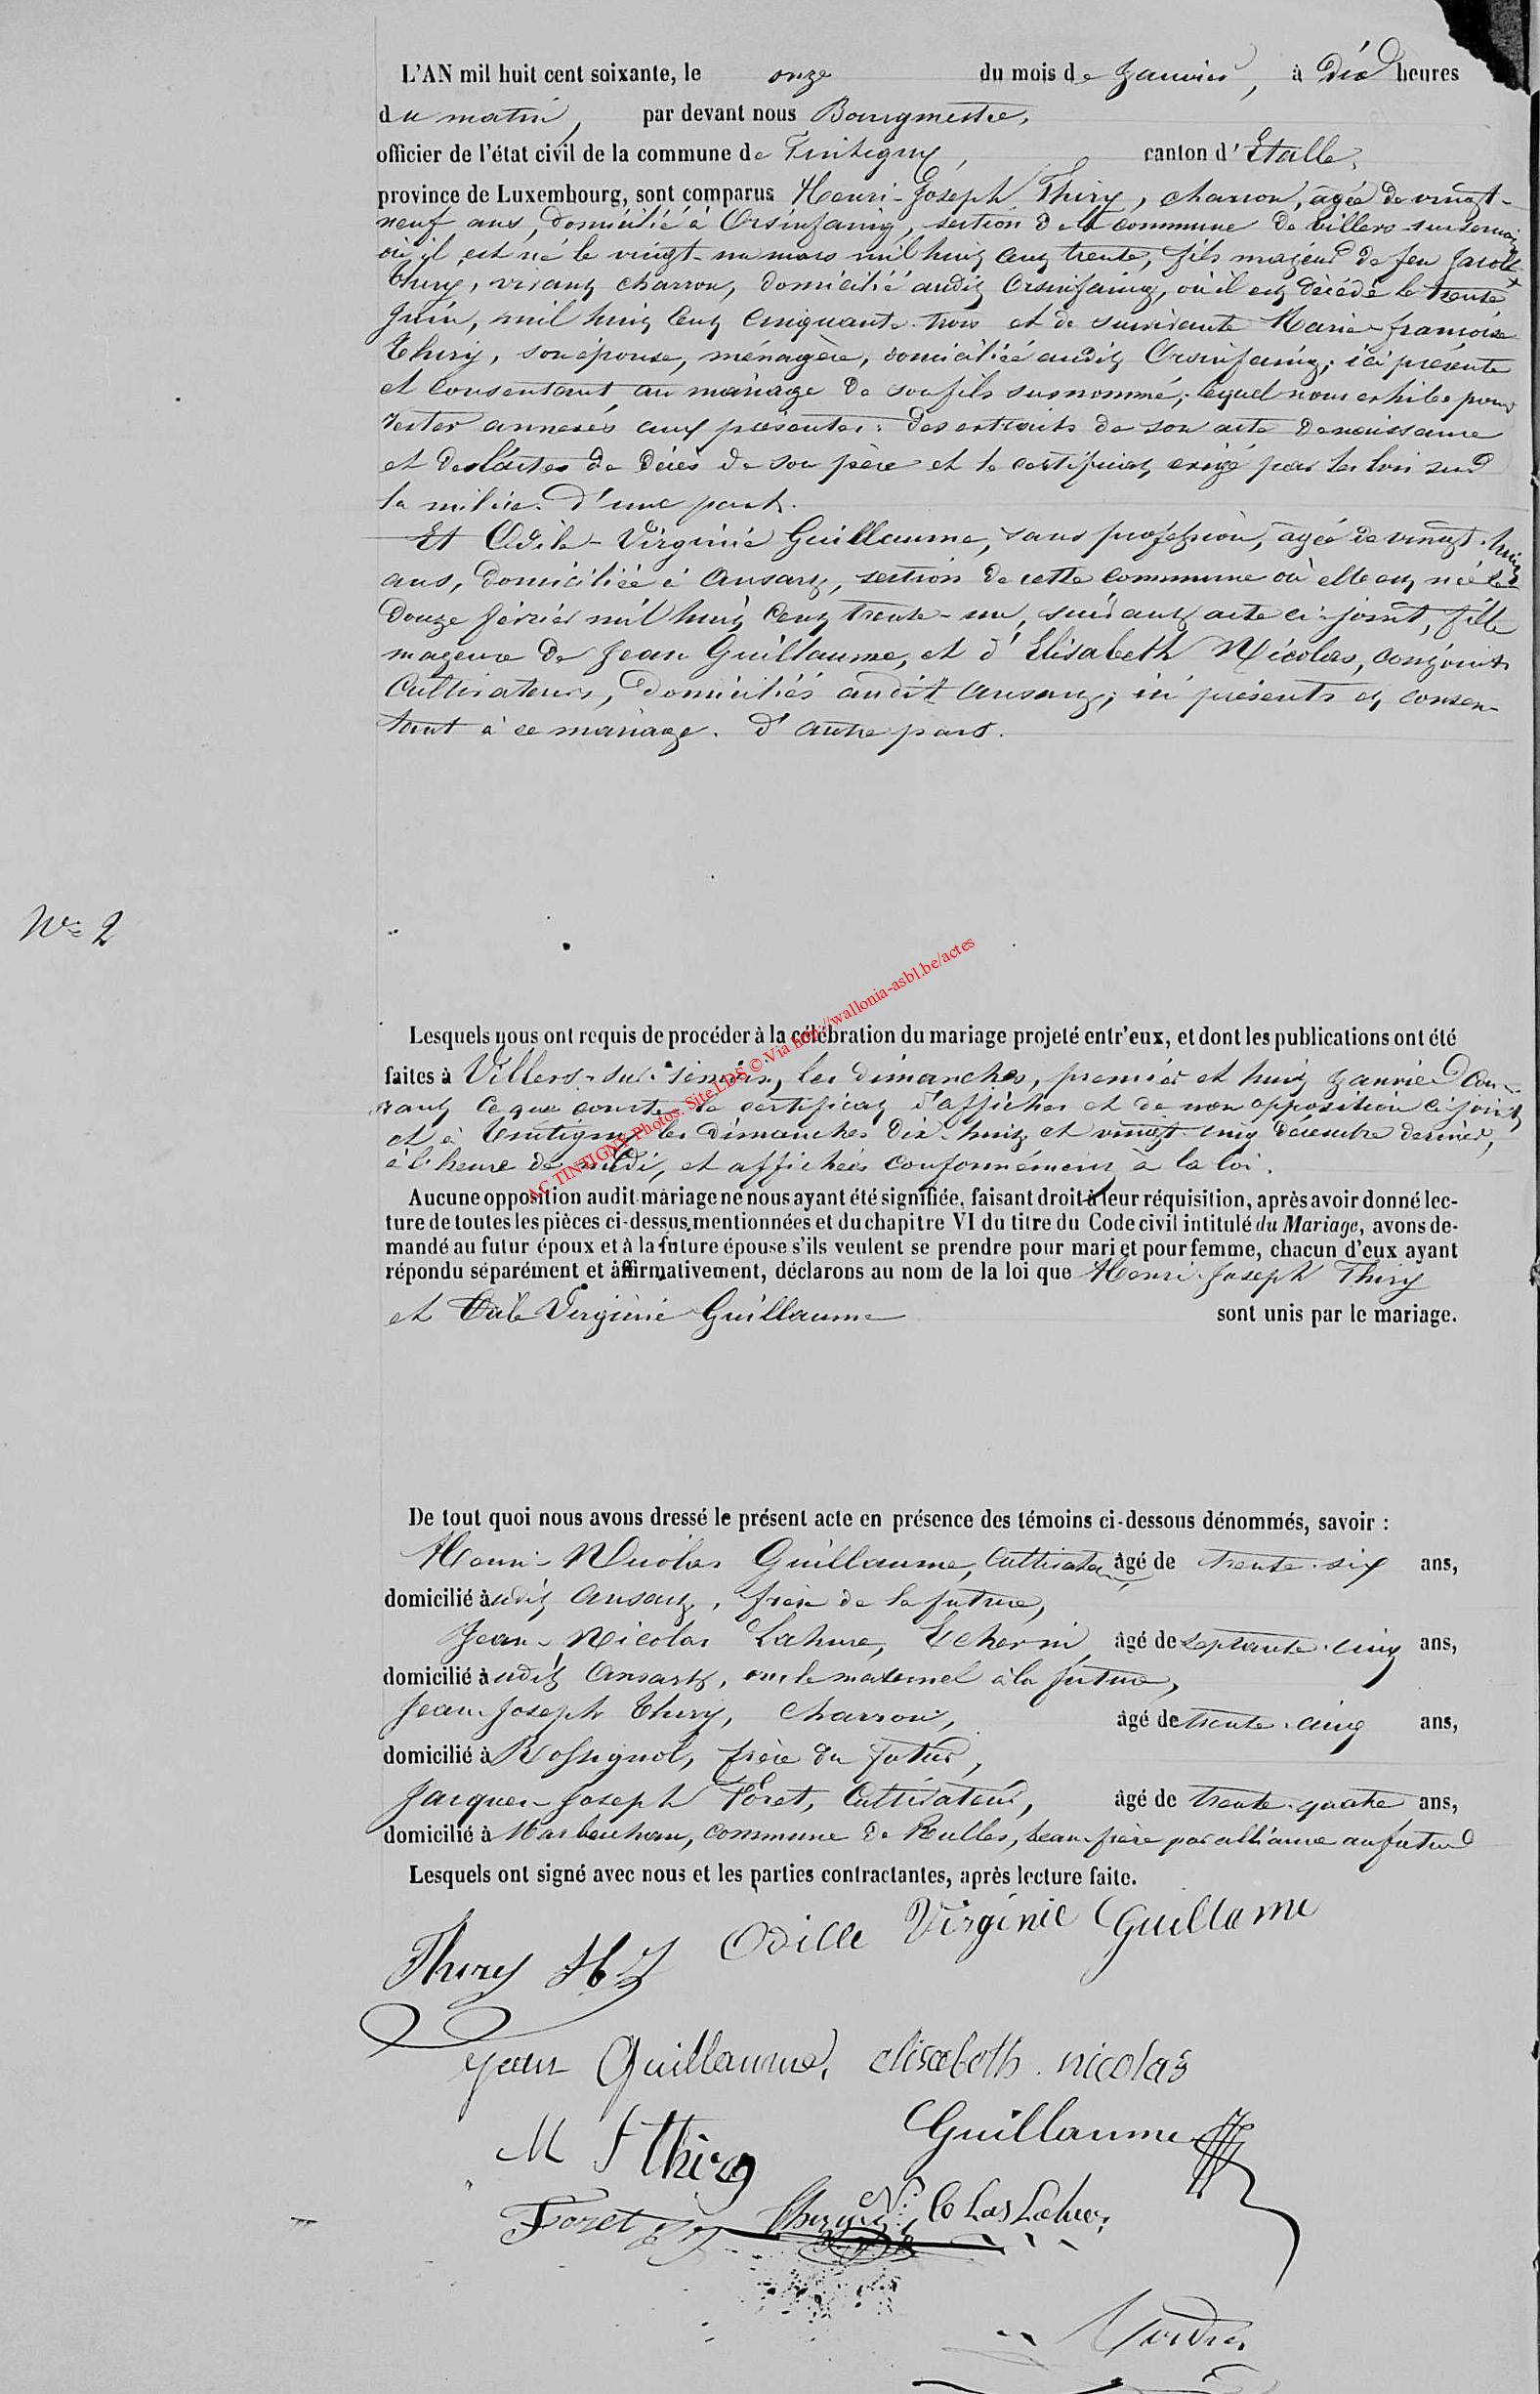 L'AN mil huit cent soixante, le onze du mois de Janvier, à dix heures
du matin, par devant nous Bourgmestre,
officier de l'état civil de la commune de Tintigny, canton d'Etalle,
province de Luxembourg, sont comparus Henri-Joseph Thiry, charron, âgé de vingt-
neuf ans, domicilié à Orsinfaing, section de la commune de villers-sur-semois
où il est né le vingt-un mars mil huit cent trente, fils majeur de feu Jacob
thiry, vivant charron, domicilié audit Orsinfaing, où il est décédé le trente
Juin, mil huit cent cinquante-trois et de survivante Marie-françoise
Thiry, son épouse, ménagère, domiciliée audit Orsinfaing; ici présente
et consentant au mariage de son fils susnommé; lequel nous exhibe pour
rester annexés aux présentes: des extraits de son acte de naissance
et de l'acte de décès de son père et le certificat exigé par les lois sur
la milice. d'une part.
Et Odile-Virginie Guillaume, sans profession, âgée de vingt-huit
ans, domiciliée à Ansart, section de cette commune où elle est née le
douze février mil huit cent trente-un, suivant acte ci-joint, fille
majeure de Jean Guillaume, et d'Elisabeth Nicolas, conjoints
Cultivateurs, domiciliés audit Ansart; ici présents et consen-
tant à ce mariage. d'autre part.
Nº 2
Lesquels nous ont requis de procéder à la célébration du mariage projeté entr'eux, et dont les publications ont été
faites à Villers-sur-semois, les dimanches, premier et huit Janvier cou-
rant ce que conste le certificat d'affiches et de non opposition ci-joint
et à Tintigny les dimanches dix-huit et vingt-cinq décembre dernier,
à l'heure de midi, et affichées conformément à la loi.
AC TINTIGNY Photos. Site LDS © Via http://wallonia-asbl.be/actes
Aucune opposition audit mariage ne nous ayant été signifiée, faisant droit à leur réquisition, après avoir donné lec-
ture de toutes les pièces ci-dessus mentionnées et du chapitre VI du titre du Code civil intitulé du Mariage, avons de-
mandé au futur époux et à la future épouse s'ils veulent se prendre pour mari et pour femme, chacun d'eux ayant
répondu séparément et affirmativement, déclarons au nom de la loi que Henri-Joseph Thiry
et Odile Virginie Guillaume sont unis par le mariage.
De tout quoi nous avons dressé le présent acte en présence des témoins ci-dessous dénommés, savoir :
Henri-Nicolas Guillaume, Cultivateur, âgé de trente-six ans,
domicilié audit Ansart, frère de la future,
Jean-Nicolas Lahure, Echevin âgé de septante-cinq ans,
domicilié audit Ansart, oncle maternel à la future,
Jean-Joseph Thiry, Charron, âgé de trente-cinq ans,
domicilié à Rossignol, frère du futur,
Jacques-Joseph Foret, Cultivateur, âgé de trente-quatre ans,
domicilié à Marbeuhan, commune de Rulles, beau-frère par alliance au futur
Lesquels ont signé avec nous et les parties contractantes, après lecture faite.
Thiry H J Odille Virginie Guillame
jean Guillaume, elisabeth nicolas
M f thiry Guillaume
Foret J J Thiry Ni Co Las Lahure